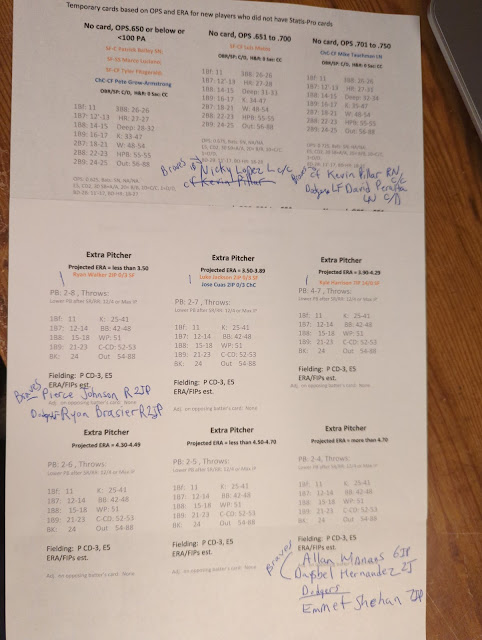 Temporary cards based on OPS and ERA for new players who did not have Statis-Pro cards
No card, OPS.650 or below or <100 PA
SF-C Patrick Bailey SN,
SF-SS Marco Luciano,
SF-CF Tyler Fitzgerald,
ChC-CF Pete Crow-Armstrong
OBR/SP: C/D, H&R: 0 Sac: CC
1Bf: 11 3B8: 26-26
1B7: 12'-13 HR: 27-27
1B8: 14-15 Deep: 28-32
1B9: 16-17 K: 33-47
2B7: 18-21 W: 48-54
2B8: 22-23 HPB: 55-55
2B9: 24-25 Out: 56-88
No card, OPS .651 to .700
SF-CF Luis Matos
OBR/SP: C/D, H&R: 0 Sac: CC
1Bf: 11 3B8: 26-26
1B7: 12'-13 HR: 27-27
1B8: 14-15 Deep: 31-33
1B9: 16-16 K: 34-47
2B7: 18-21 W: 48-54
2B8: 22-23 HPB: 55-55
2B9: 24-25 Out: 56-88
Braves
Nicky Lopez L c/c
cf Kevin Pillar
No card, OPS .701 to .750
ChC-CF Mike Tauchman LN
OBR/SP: C/D, H&R: 0 Sac: CC
1Bf: 11 3B8: 26-26
1B7: 12'-13 HR: 27-27
1B8: 14-15 Deep: 32-34
1B9: 16-16 K: 35-47
2B7: 18-21 W: 48-54
2B8: 22-23 HPB: 55-55
2B9: 24-25 Out: 56-88
Braves cf Kevin Pillar RN C/C
Dodgers LF David Peralta
LN C/D
Extra Pitcher
Projected ERA = less than 3.50
Ryan Walker ZIP 0/3 SF
PB: 2-8 , Throws:
Lower PB after SR/RR: 12/4 or Max IP
1Bf: 11 K: 25-41
1B7: 12-14 BB: 42-48
1B8: 15-18 WP: 51
1B9: 21-23 C-CD: 52-53
BK: 24 Out 54-88
Fielding: P CD-3, E5
ERA/FIPs est.
Adj. on opposing batter's card: None
Braves Pierce Johnson R 2IP
Dodgers Ryan Brasier R 2IP
Extra Pitcher
Projected ERA = 3.50-3.89
Luke Jackson ZIP 0/3 SF
Jose Cuas ZIP 0/3 ChC
PB: 2-7 , Throws:
Lower PB after SR/RR: 12/4 or Max IP
1Bf: 11 K: 25-41
1B7: 12-14 BB: 42-48
1B8: 15-18 WP: 51
1B9: 21-23 C-CD: 52-53
BK: 24 Out 54-88
Fielding: P CD-3, E5
ERA/FIPs est.
Adj. on opposing batter's card: None
Extra Pitcher
Projected ERA = 3.90-4.29
Kyle Harrison
PB: 4-7 , Throws:
Lower PB after SR/RR: 12/4 or Max IP
1Bf: 11 K: 25-41
1B7: 12-14 BB: 42-48
1B8: 15-18 WP: 51
1B9: 21-23 C-CD: 52-53
BK: 24 Out 54-88
Fielding: P CD-3, E5
ERA/FIPs est.
Adj. on opposing batter's card: None
Extra Pitcher
Projected ERA = 4.30-4.49
PB: 2-6 , Throws:
Lower PB after SR/RR: 12/4 or Max IP
1Bf: 11 K: 25-41
1B7: 12-14 BB: 42-48
1B8: 15-18 WP: 51
1B9: 21-23 C-CD: 52-53
BK: 24 Out 54-88
Fielding: P CD-3, E5
ERA/FIPs est.
Adj. on opposing batter's card: None
Extra Pitcher
Projected ERA = less than 4.50-4.70
PB: 2-5 , Throws:
Lower PB after SR/RR: 12/4 or Max IP
1Bf: 11 K: 25-41
1B7: 12-14 BB: 42-48
1B8: 15-18 WP: 51
1B9: 21-23 C-CD: 52-53
BK: 24 Out 54-88
Fielding: P CD-3, E5
ERA/FIPs est.
Adj. on opposing batter's card: None
Extra Pitcher
Projected ERA = more than 4.70
PB: 2-4 , Throws:
Lower PB after SR/RR: 12/4 or Max IP
1Bf: 11 K: 25-41
1B7: 12-14 BB: 42-48
1B8: 15-18 WP: 51
1B9: 21-23 C-CD: 52-53
BK: 24 Out 54-88
Fielding: P CD-3, E5
ERA/FIPs est.
Braves
Allan Winans 6IP
Daysbel Hernandez 2I
Dodgers
Emmet Shehan 7IP